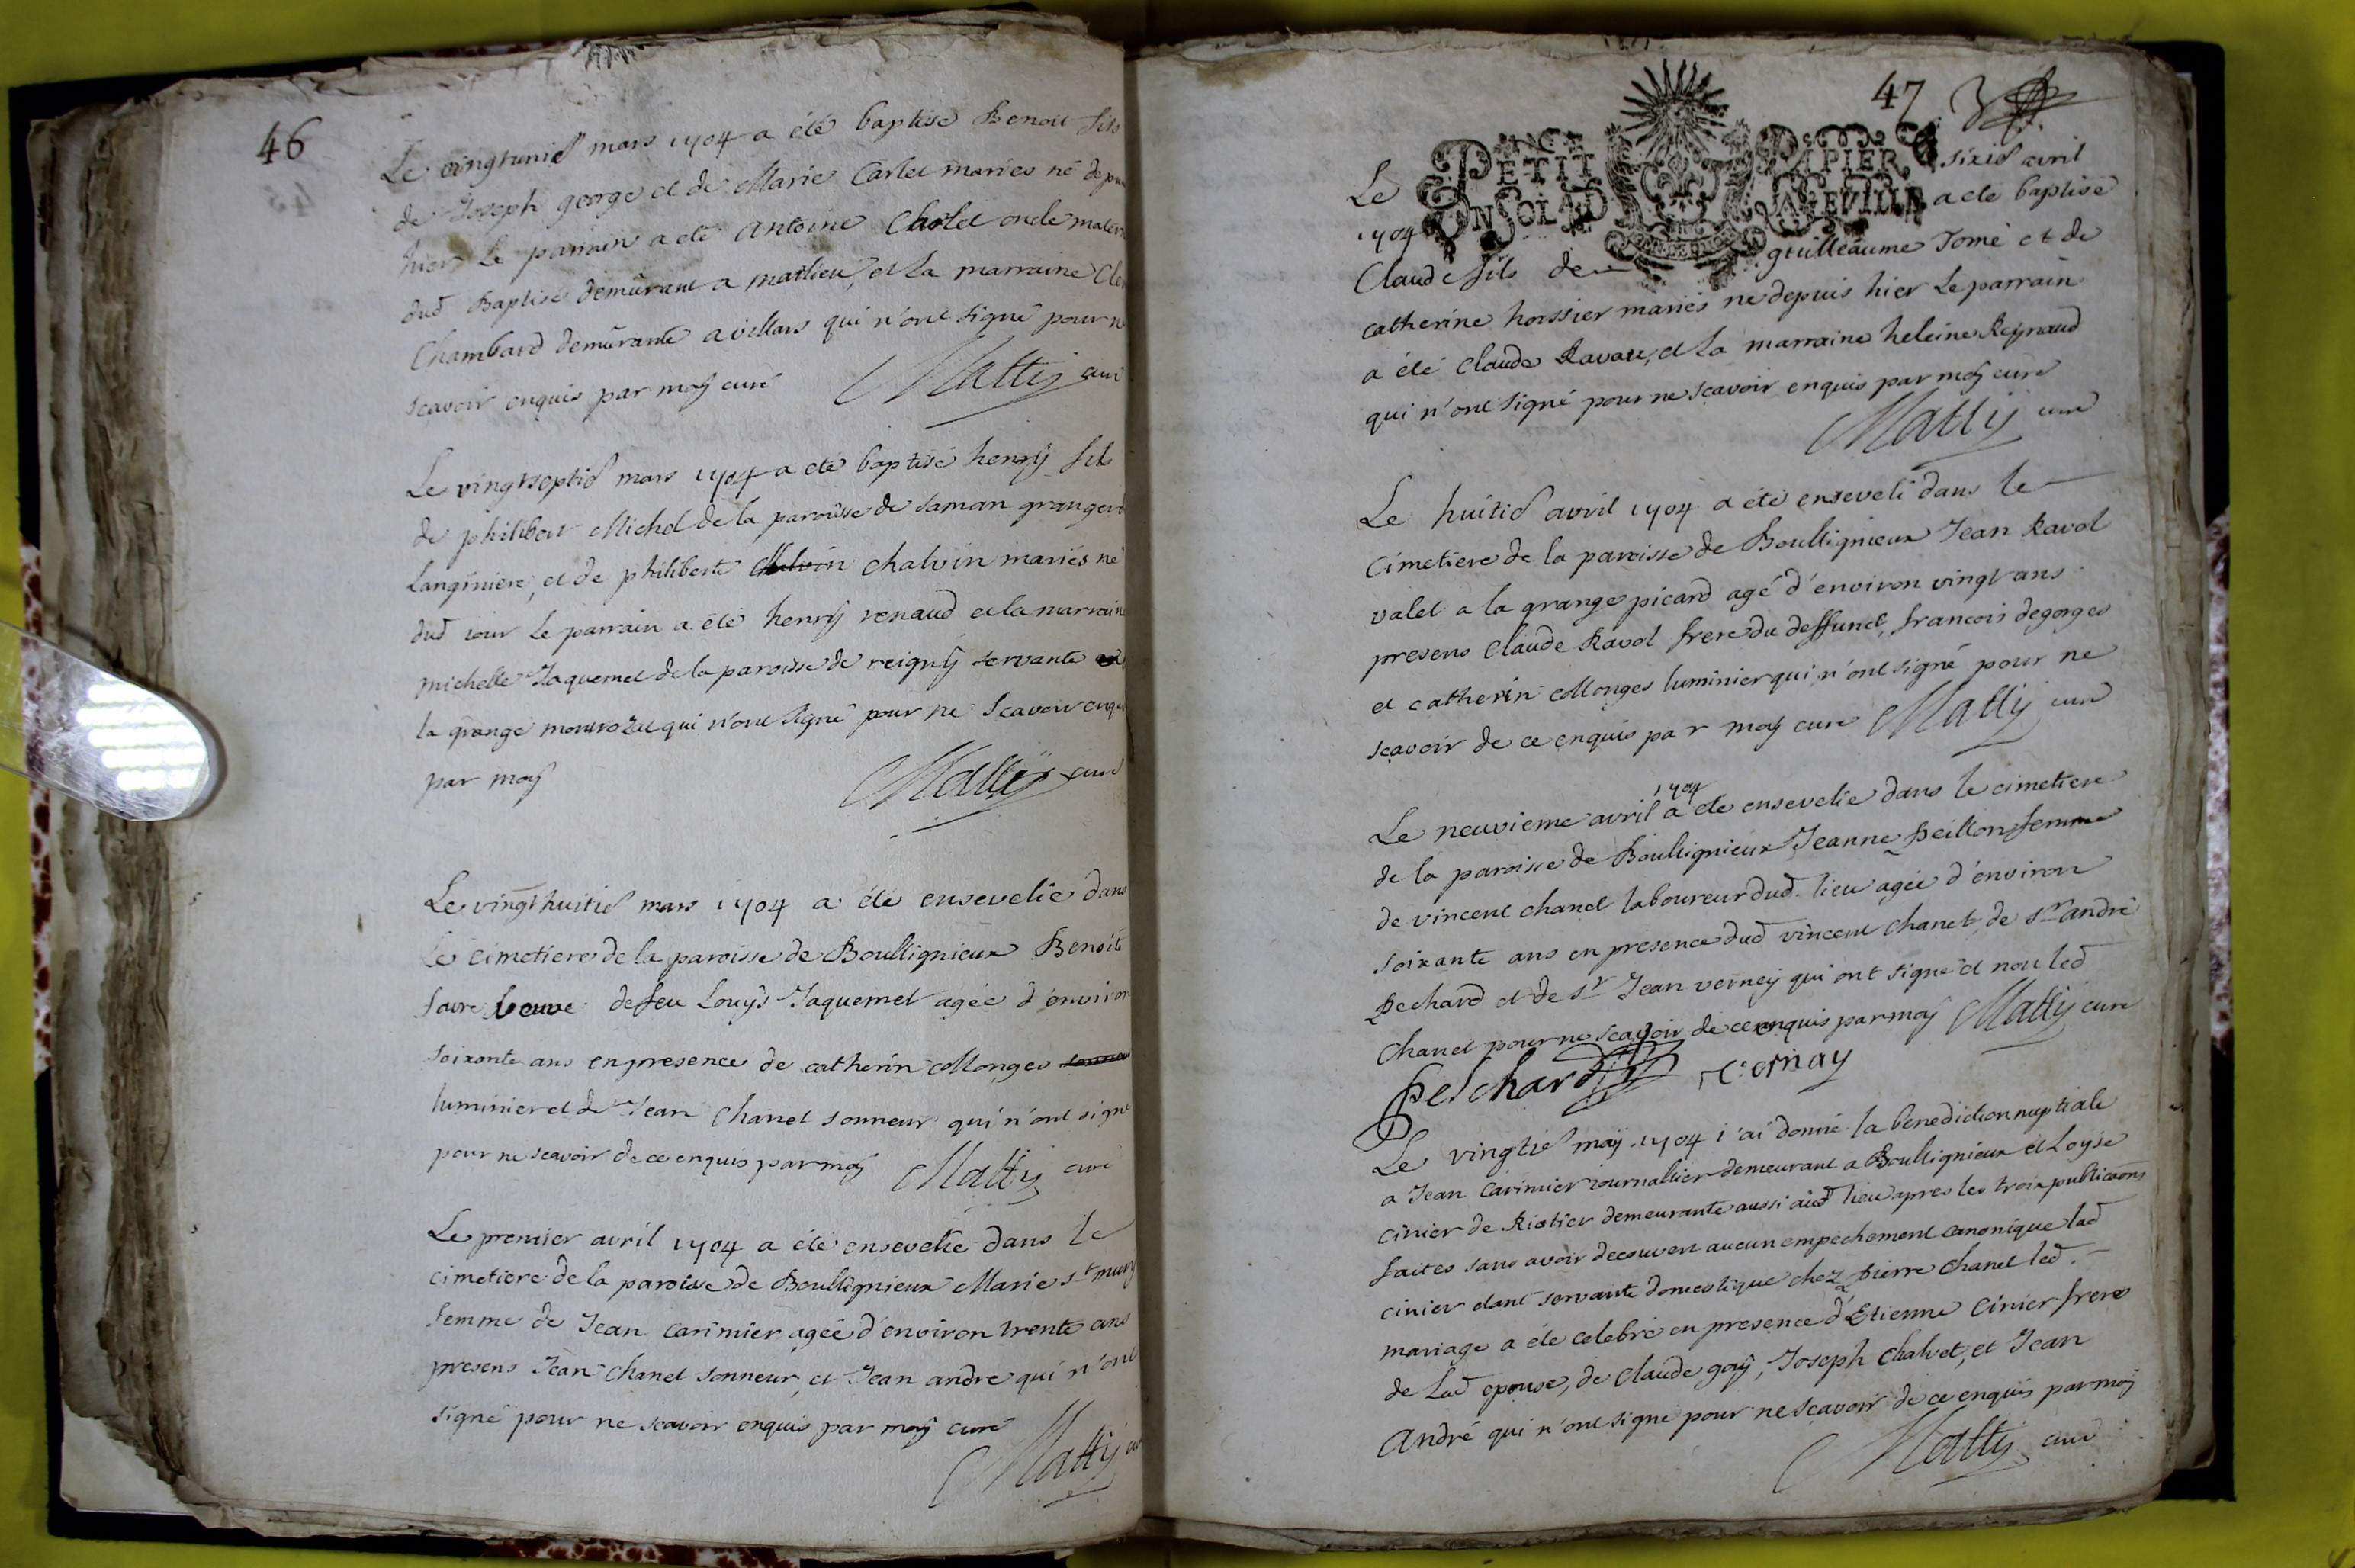 46
Le vingtunie mars 1704 a été baptisé Benoit fils
de Joseph george et de Marie Carlet mariés né depuis
hier Le parrain a eté Antoine Chatel oncle matern
dud Baptisé demûrant a marlieu, et La marraine Cle
Chambard demûrante a villars qui n'ont signé pour ne
scavoir enquis par moÿ curé Mattij curé
Le vingtseptie mars 1704 a eté baptisé henrÿ fils
de philibert Michel de la paroisse de saman granger
Langiniere, et de philiberte chalvin mariés né
dud iour Le parrain a été henrÿ renaud et la marraine
michelle Jaquemet de la paroisse de reignÿ servante
la grange monrozet qui n'ont signé pour ne scavoir enqui
par moÿ Mattij curé
Le vingthuitie mars 1704 a été ensevelie dans
le cimetiere de la paroisse de Boullignieux Benoite
favre veuve de feu Louÿs Jaquemet agée d'environ
soixante ans en presence de catherin Monges
luminier et de Jean Chanel sonneur qui n'ont signé
pour ne scavoir de ce enquis par moÿ Mattij curé
Le premier avril 1704 a été ensevelie dans le
cimetiere de la paroisse de Boullignieux Marie st mury
femme de Jean carimier agée d'environ trente ans
presens Jean Chanel sonneur, et Jean andre qui n'ont
signé pour ne scavoir enquis par moÿ curé
Mattij cu
47
PETIT PAPIER
ONSOLD
Le sixie avril
1704 a eté baptisé
Claude fils de guilleaume Tomé et de
catherine horssier mariés ne depuis hier Le parrain
a été Claude Ravat, et La marraine heleine Reÿnaud
qui n'ont signé pour ne scavoir enquis par moÿ curé
Mattij curé
Le huitie avril 1704 a été enseveli dans le
Cimetiere de la paroisse de Boullignieux Jean Ravol
valet a la grange picard agé d'environ vingt ans
presens Claude Ravol frere du deffunct, francois degorges
et catherin Monges luminier qui n'ont signé pour ne
scavoir de ce enquis par moÿ curé Mattij curé
Le neuvieme avril 1704 a été ensevelie dans le cimetiere
de la paroisse de Boulignieux Jeanne peillon femme
de vincent chanel laboureur dud. lieu agée d'environ
soixante ans en presence dud vincent chanel, de sr andré
pechard et de sr Jean verneÿ qui ont signé et non led
Chanel pour ne scavoir de ce enquis par moÿ Mattij curé
peschard vernay
Le vingtie maÿ 1704 i'ai donné la benediction nuptiale
a Jean Carimier iournallier demeurant a Boullignieux et Loÿse
Cinier de Riotier demeurante aussi aud lieu apres les trois publicaons
faites sans avoir decouvert aucun empechement canonique lad
cinier etant servante domestique chez pierre Chanel led.
mariage a été celebré en presence d'Etienne Cinier frere
de Lad epouse, de Claude goÿ, Joseph Chalvet, et Jean
André qui n'ont signé pour ne scavoir de ce enquis par moÿ
Mattij curé